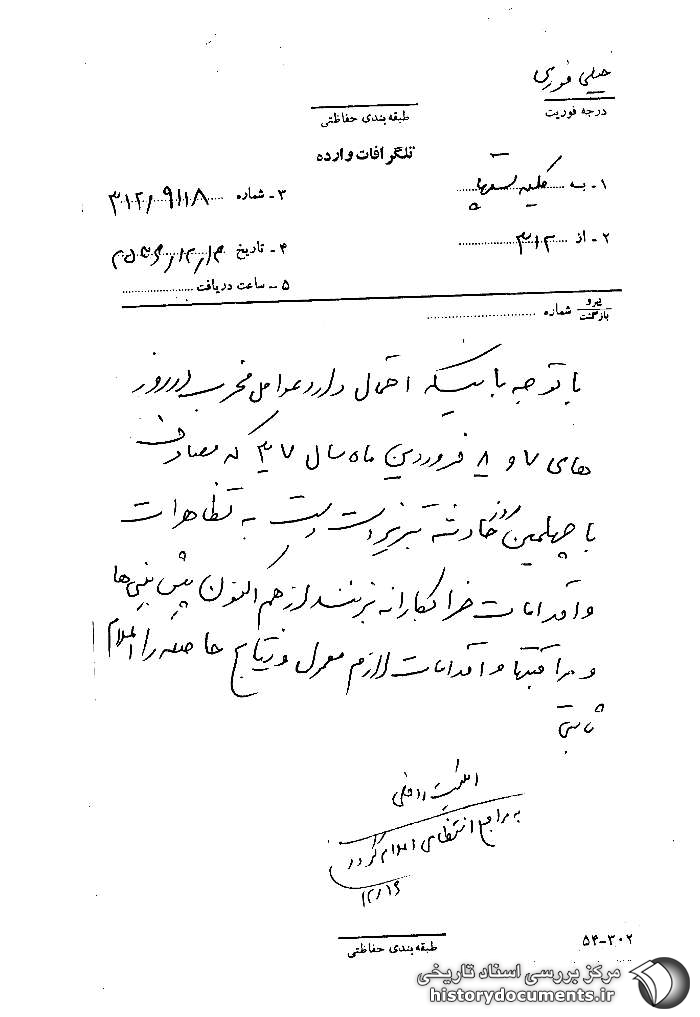 خیلی فوری
درجه فوریت
طبقه‌بندی حفاظتی
تلگرافات وارده
۱ - به کلیه تسعها
۳ - شماره ۳۱۲/۹۱۱۸
۲ - از ۳۱۲
۴ - تاریخ ۲۵۳۶/۱۲/۱۴
۵ - ساعت دریافت
پیرو
بازگشت
شماره
با توجه باینکه احتمال دارد عوامل مخرب در روز
های ۷ و ۸ فروردین ماه سال ۳۷ که مصادف
با چهلمین روز حادثه تبریز است دست به تظاهرات
و اقدامات خرابکارانه بزنند از هم اکنون پیش بینی‌ها
و مراقبتها و اقدامات لازم معمول و نتایج حاصله را اعلام
ثابتی
امنیت داخلی
به مراجع انتظامی اعلام گردد
۱۲/۱۶
طبقه‌بندی حفاظتی
۵۴-۳۰۲
مرکز بررسی اسناد تاریخی
historydocuments.ir